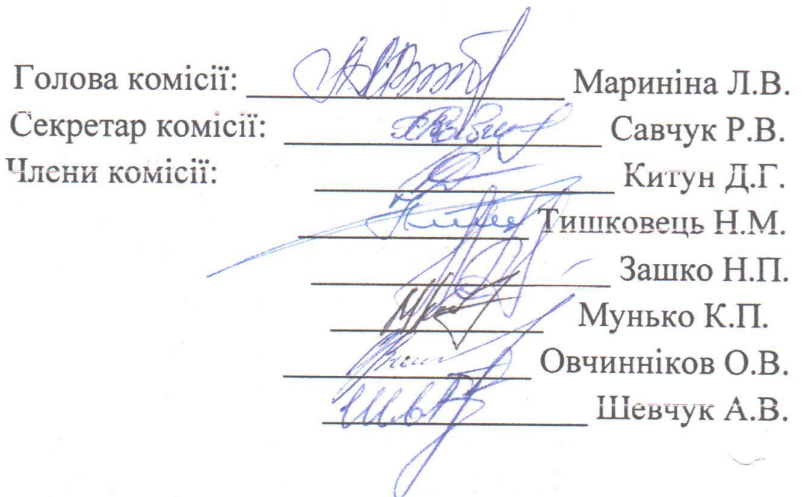 Голова комісії: Мариніна Л.В.
Секретар комісії: Савчук Р.В.
Члени комісії: Китун Д.Г.
Тишковець Н.М.
Зашко Н.П.
Мунько К.П.
Овчинніков О.В.
Шевчук А.В.